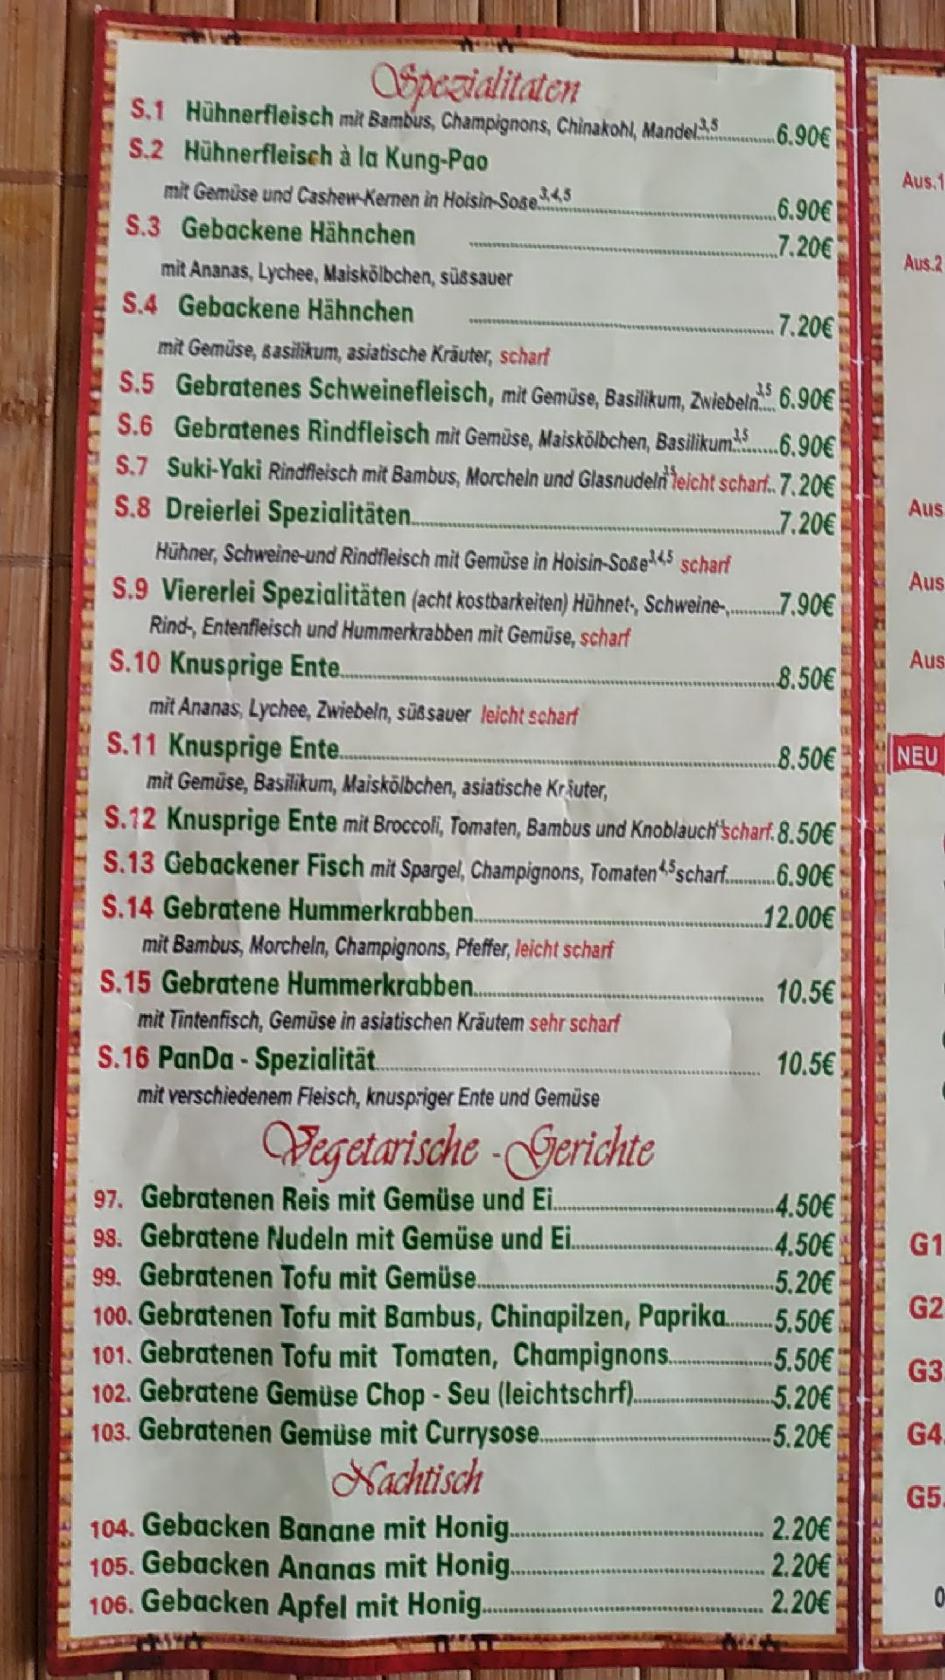 Spezialitaten
S.1 Hühnerfleisch mit Bambus, Champignons, Chinakohl, Mandel 3,5 6.90€
S.2 Hühnerfleisch à la Kung-Pao
mit Gemüse und Cashew-Kernen in Hoisin-Soße 3,4,5 6.90€
S.3 Gebackene Hähnchen 7.20€
mit Ananas, Lychee, Maiskölbchen, süßsauer
S.4 Gebackene Hähnchen 7.20€
mit Gemüse, ßasilikum, asiatische Kräuter, scharf
S.5 Gebratenes Schweinefleisch, mit Gemüse, Basilikum, Zwiebeln 3,5 6.90€
S.6 Gebratenes Rindfleisch mit Gemüse, Maiskölbchen, Basilikum 3,5 6.90€
S.7 Suki-Yaki Rindfleisch mit Bambus, Morcheln und Glasnudeln leicht scharf.. 7.20€
S.8 Dreierlei Spezialitäten 7.20€
Hühner, Schweine-und Rindfleisch mit Gemüse in Hoisin-Soße 3,4,5 scharf
S.9 Viererlei Spezialitäten (acht kostbarkeiten) Hühnet-, Schweine-, 7.90€
Rind-, Entenfleisch und Hummerkrabben mit Gemüse, scharf
S.10 Knusprige Ente 8.50€
mit Ananas, Lychee, Zwiebeln, süßsauer leicht scharf
S.11 Knusprige Ente 8.50€
mit Gemüse, Basilikum, Maiskölbchen, asiatische Kräuter,
S.12 Knusprige Ente mit Broccoli, Tomaten, Bambus und Knoblauch scharf. 8.50€
S.13 Gebackener Fisch mit Spargel, Champignons, Tomaten 4,5 scharf 6.90€
S.14 Gebratene Hummerkrabben 12.00€
mit Bambus, Morcheln, Champignons, Pfeffer, leicht scharf
S.15 Gebratene Hummerkrabben 10.5€
mit Tintenfisch, Gemüse in asiatischen Kräutern sehr scharf
S.16 PanDa - Spezialität 10.5€
mit verschiedenem Fleisch, knuspriger Ente und Gemüse
Vegetarische - Gerichte
97. Gebratenen Reis mit Gemüse und Ei 4.50€
98. Gebratene Nudeln mit Gemüse und Ei 4.50€
99. Gebratenen Tofu mit Gemüse 5.20€
100. Gebratenen Tofu mit Bambus, Chinapilzen, Paprika 5.50€
101. Gebratenen Tofu mit Tomaten, Champignons 5.50€
102. Gebratene Gemüse Chop - Seu (leichtschrf) 5.20€
103. Gebratenen Gemüse mit Currysose 5.20€
Nachtisch
104. Gebacken Banane mit Honig 2.20€
105. Gebacken Ananas mit Honig 2.20€
106. Gebacken Apfel mit Honig 2.20€
Aus.1
Aus.2
Aus
Aus
Aus
NEU
G1
G2
G3.
G4.
G5.